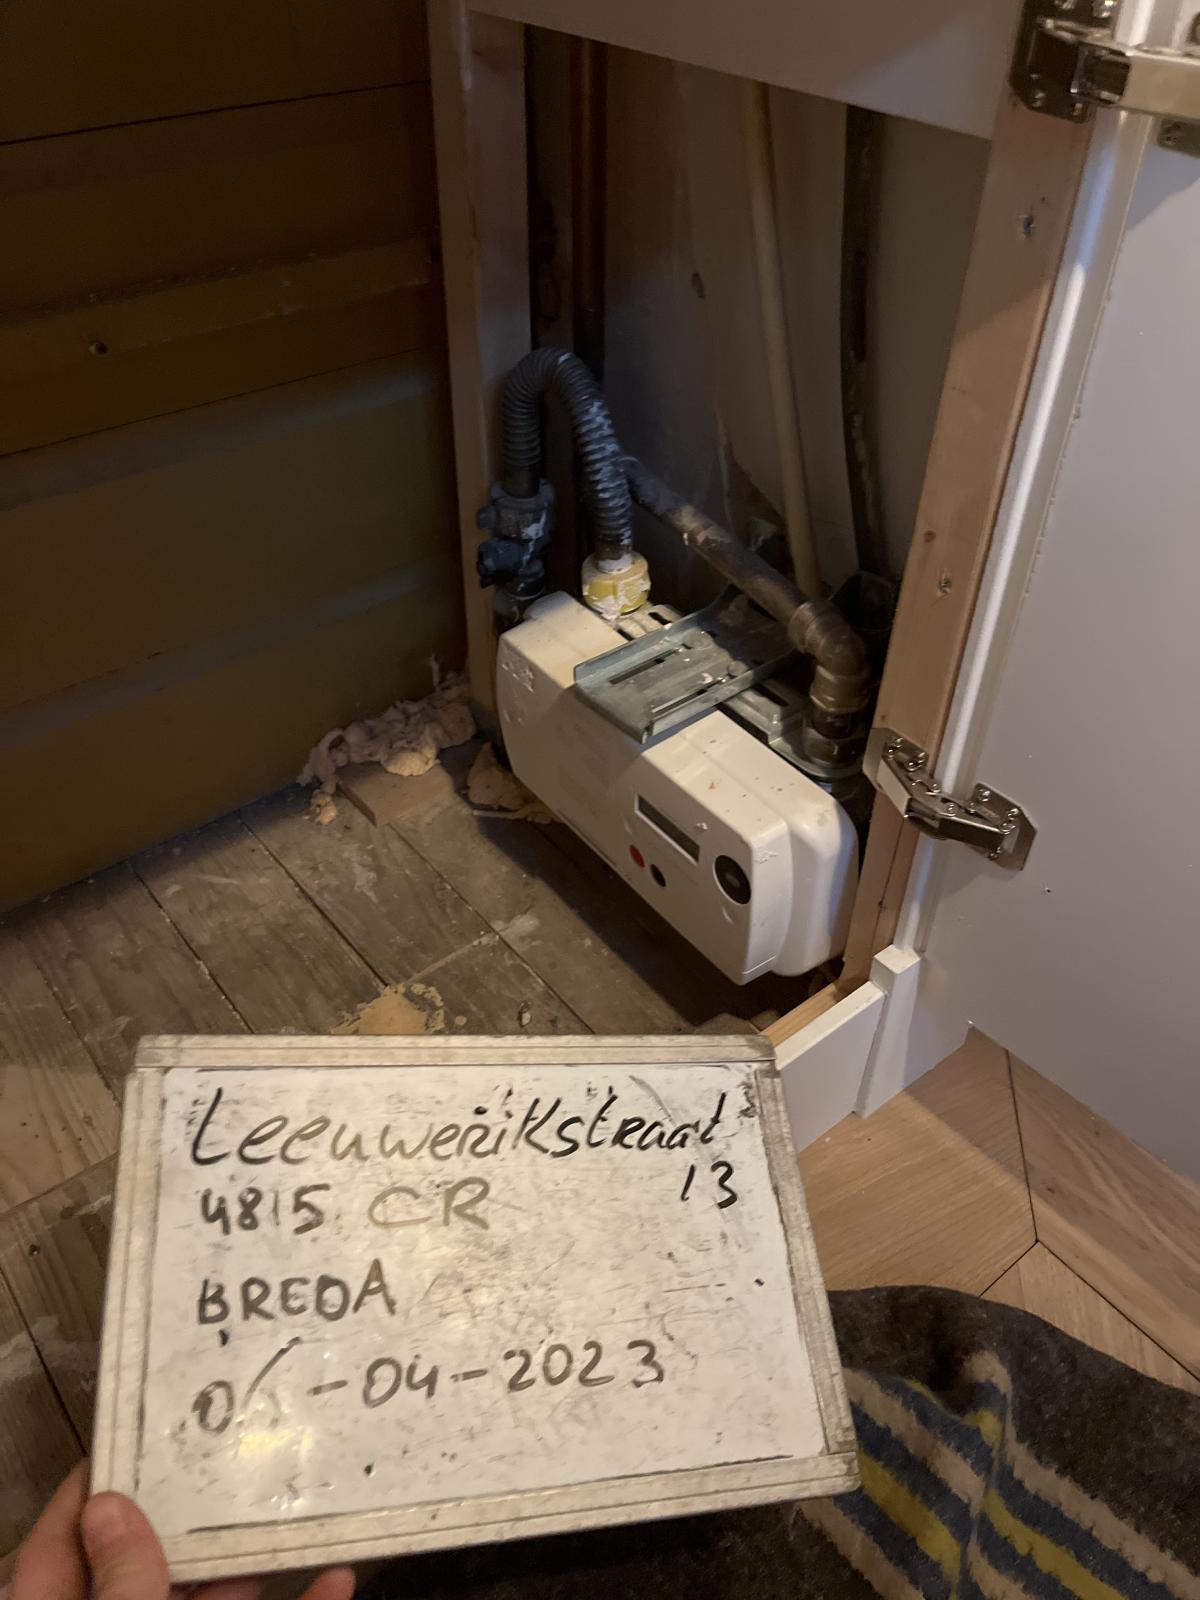 Leeuwerikstraat
13
4815 CR
BREDA
-04-2023